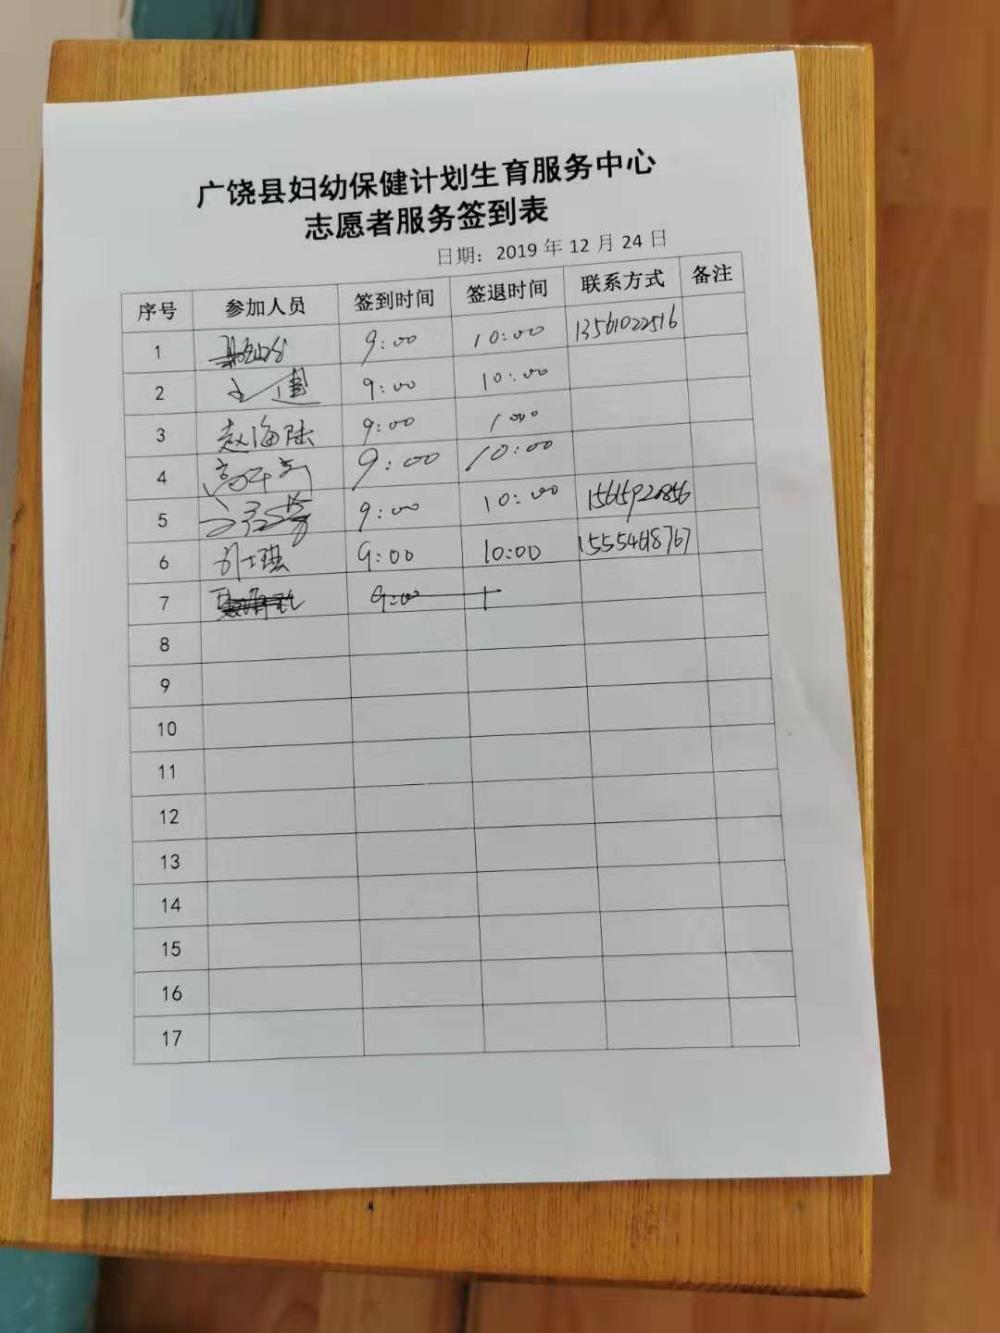 广饶县妇幼保健计划生育服务中心
志愿者服务签到表
日期：2019 年 12 月 24 日
序号 参加人员 签到时间 签退时间 联系方式 备注
1 9:00 10:00 13561022516
2 9:00 10:00
3 赵海陆 9:00 10:00
4 9:00 10:00
5 9:00 10:00
6 9:00 10:00
7 9:00
8
9
10
11
12
13
14
15
16
17